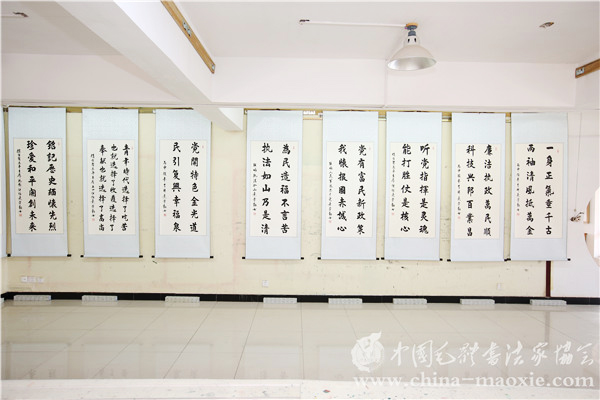 一身正氣重千古
两袖清風抵萬金
廉法执政萬民順
科技兴邦百業昌
听党指揮是灵魂
能打胜仗是核心
党有富民新政策
我懷报國赤誠心
為民造福不言苦
执法如山乃是清
党開特色金光道
民引复興幸福泉
青年時代选择了吃苦
也就选择了收獲选择了
奉献也就选择了高尚
銘記歷史緬懷先烈
珍爱和平開創未来
中国毛體書法家協会
www.china-maoxie.com